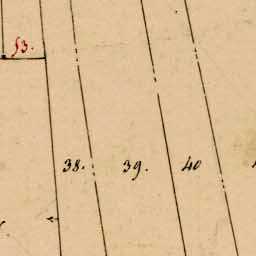 53.
38. 39. 40